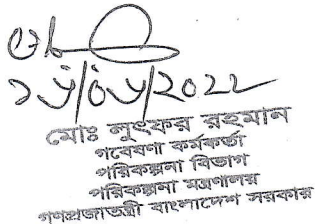 মোঃ লুৎফর রহমান
গবেষণা কর্মকর্তা
পরিকল্পনা বিভাগ
পরিকল্পনা মন্ত্রণালয়
গণপ্রজাতন্ত্রী বাংলাদেশ সরকার